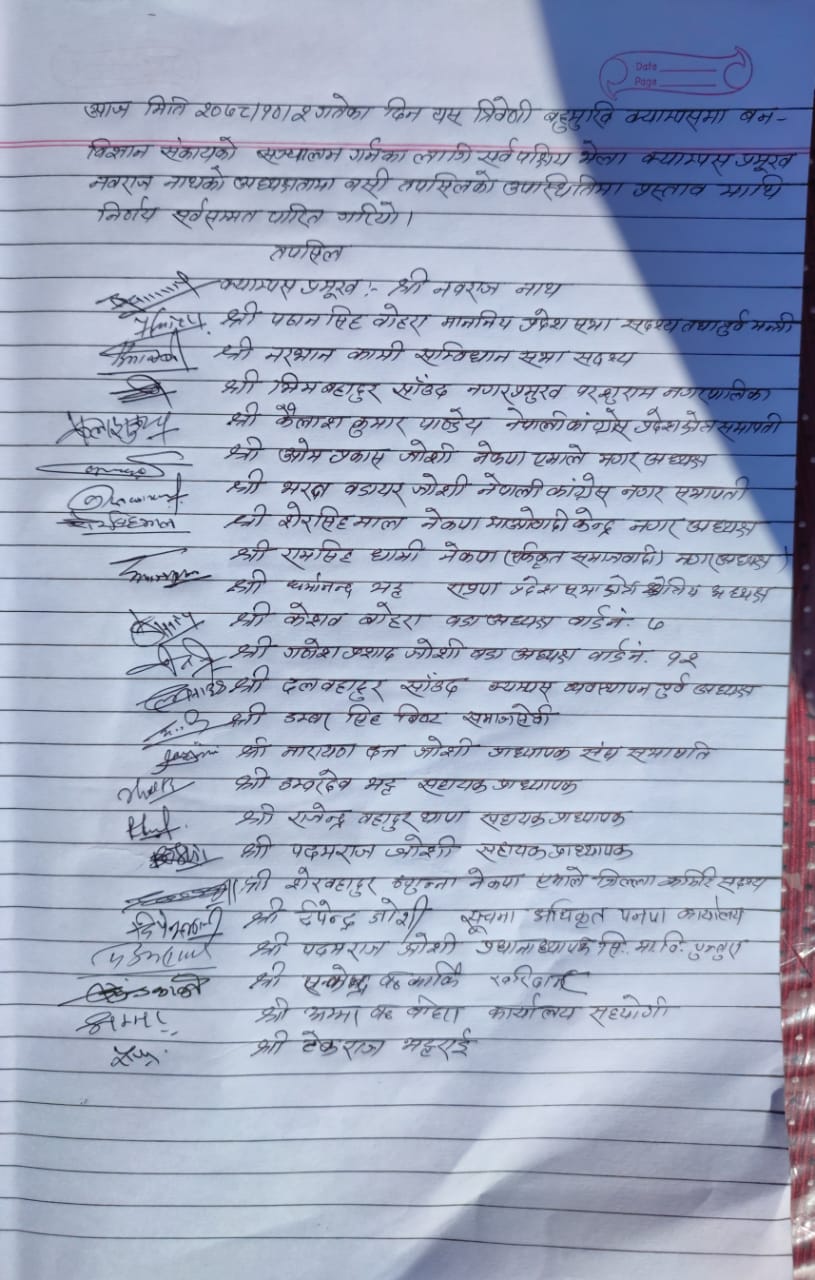 Date
Page
आज मिति २०७८/१०/२ गतेका दिन यस त्रिवेणी बहुमुखि क्याम्पसमा बन-
विज्ञान संकायको सञ्चालन गर्नका लागि सर्व पक्षिय भेला क्याम्पस प्रमूख
नवराज नाथको अध्यक्षतामा बसी तपसिलको उपस्थितिमा प्रस्ताव माथि
निर्णय सर्वसम्मत पारित गरियो।
तपसिल
क्याम्पस प्रमूख :- श्री नवराज नाथ
श्री पठान सिंह वोहरा माननिय प्रदेश सभा सदस्य तथा पुर्व मन्त्री
श्री नरभान कामी संविधान सभा सदस्य
श्री भिम बहादुर साँउद नगर प्रमूख परशुराम नगरपालिका
श्री कैलाश कुमार पाण्डेय नेपाली कांग्रेस प्रदेश क्षेत्र सभापती
श्री ओम प्रकास जोशी नेकपा एमाले नगर अध्यक्ष
श्री भरत वडायर जोशी नेपाली कांग्रेस नगर सभापती
शेरसिंह माल श्री शेरसिंह माल नेकपा माओवादी केन्द्र नगर अध्यक्ष
श्री रामसिंह धामी नेकपा (एकिकृत समाजवादी) नगर अध्यक्ष
श्री धर्मानन्द भट्ट राप्रपा प्रदेश सभा क्षेत्र क्षेत्रिय अध्यक्ष
श्री केशव बोहरा वडा अध्यक्ष वार्ड नं. ७
श्री गणेश प्रशाद जोशी वडा अध्यक्ष वार्ड नं. १२
श्री दलबहादुर साँउद क्याम्पस व्यवस्थापन पुर्व अध्यक्ष
श्री डम्बर सिंह बिष्ट समाजसेवी
श्री नारायण दत्त जोशी प्राध्यापक संघ सभापति
श्री डम्वरदेव भट्ट सहायक प्राध्यापक
श्री राजेन्द्र बहादुर थापा सहायक प्राध्यापक
श्री पदमराज जोशी सहायक प्राध्यापक
श्री शेरबहादुर नेकपा एमाले जिल्ला कमिटि सदस्य
श्री दिपेन्द्र जोशी सूचना अधिकृत पनपा कार्यालय
श्री पदमराज जोशी प्रधानाध्यापक सि. मा. वि.
श्री बह कार्कि
श्री अम्मा बह बोहरा कार्यालय सहयोगी
श्री टेकराज भट्टराई